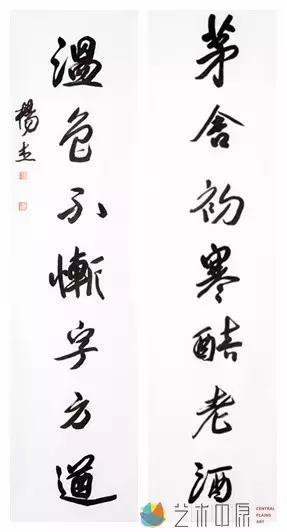 茅舍初寒老酒
溫色不慚字方
楊
艺术中原
CENTRAL
PLAINS
ART